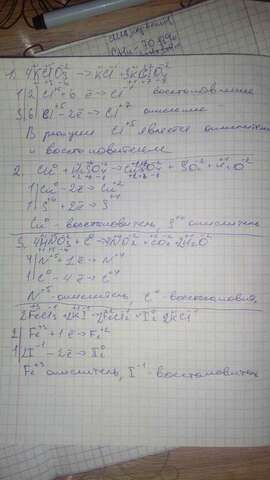 1. 4KClO₃ → KCl + 3KClO₄
1|2|Cl⁺⁵ + 6ē → Cl⁻ восстановление
3|6|Cl⁺⁵ - 2ē → Cl⁺⁷ окисление
В реакции Cl⁺⁵ является окислителем
и восстановителем
2. Cu⁰ + H₂SO₄ → CuSO₄ + SO₂ + H₂O
1|Cu⁰ - 2ē → Cu⁺²
1|S⁺⁶ + 2ē → S⁺⁴
Cu⁰ - восстановитель, S⁺⁶ окислитель
3. 4HNO₃ + C⁰ → 4NO₂ + CO₂ + 2H₂O
4|N⁺⁵ + 1ē → N⁺⁴
1|C⁰ - 4ē → C⁺⁴
N⁺⁵ окислитель, C⁰ - восстановитель
2FeCl₃ + 2KI → 2FeCl₂ + I₂ + 2KCl
2|Fe⁺³ + 1ē → Fe⁺²
1|2I⁻¹ - 2ē → I₂⁰
Fe⁺³ окислитель, I⁻¹ - восстановитель